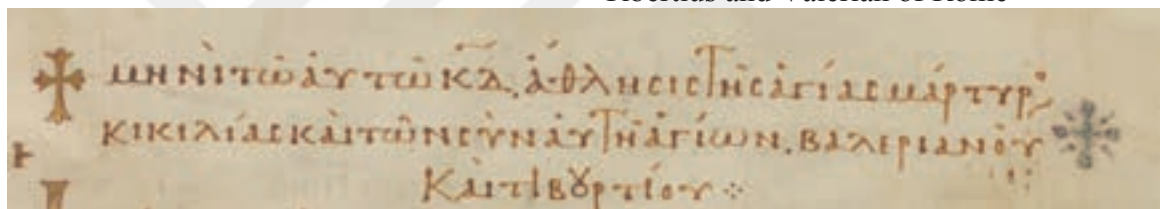 Tiburtius and Valerian of Rome
✝ μηνὶ τῶ ἀυτῶ κδ, ἄθλησις τῆς ἁγίας μάρτυρ
κικιλίας καὶ τῶν σὺν ἀυτῆ ἁγίων, βαλεριανοῦ
καὶ τιβȣρτίου ⁘